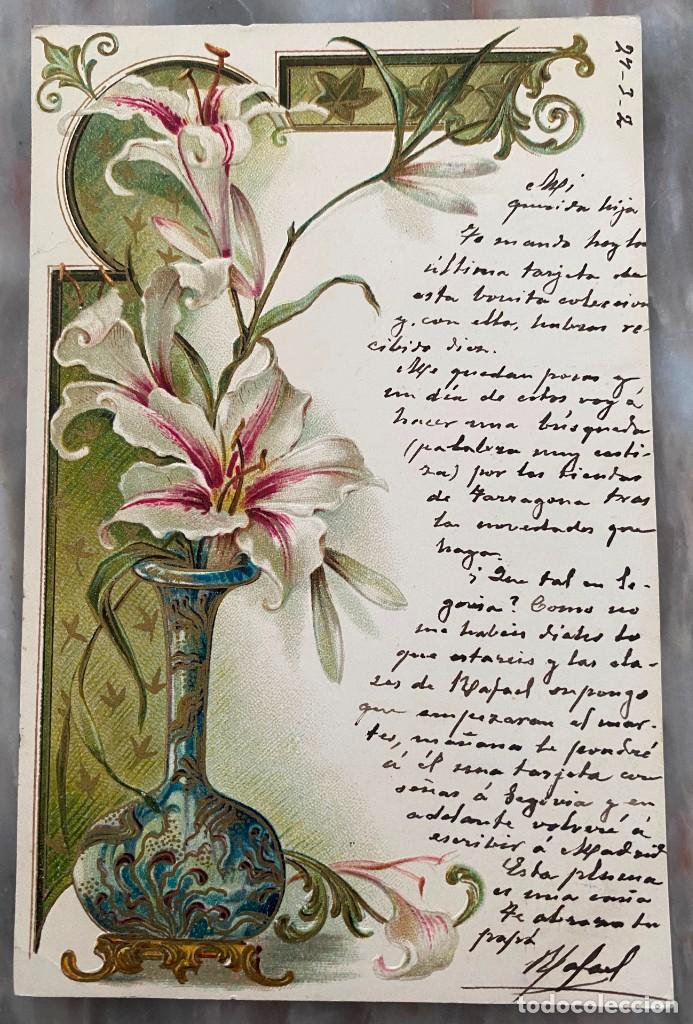 24-3-2
Mi
querida hija
Te mando hoy la
última tarjeta de
esta bonita coleccion
y, con ella, habras re-
cibido diez.
Me quedan pocas y
un día de estos voy á
hacer una búsqueda
(palabra muy casti-
za) por las tiendas
de Tarragona tras
las novedades que
haya.
¿Que tal en Se-
govia? Como no
me habeis dicho lo
que estareis y las cla-
ses de Rafael supongo
que empezaran el mar-
tes, mañana te pondré
á él una tarjeta con
señas á Segovia y en
adelante volveré á
escribir á Madrid
Esta pluma
es una caña
Te abraza tu
papá
Rafael
todocoleccion